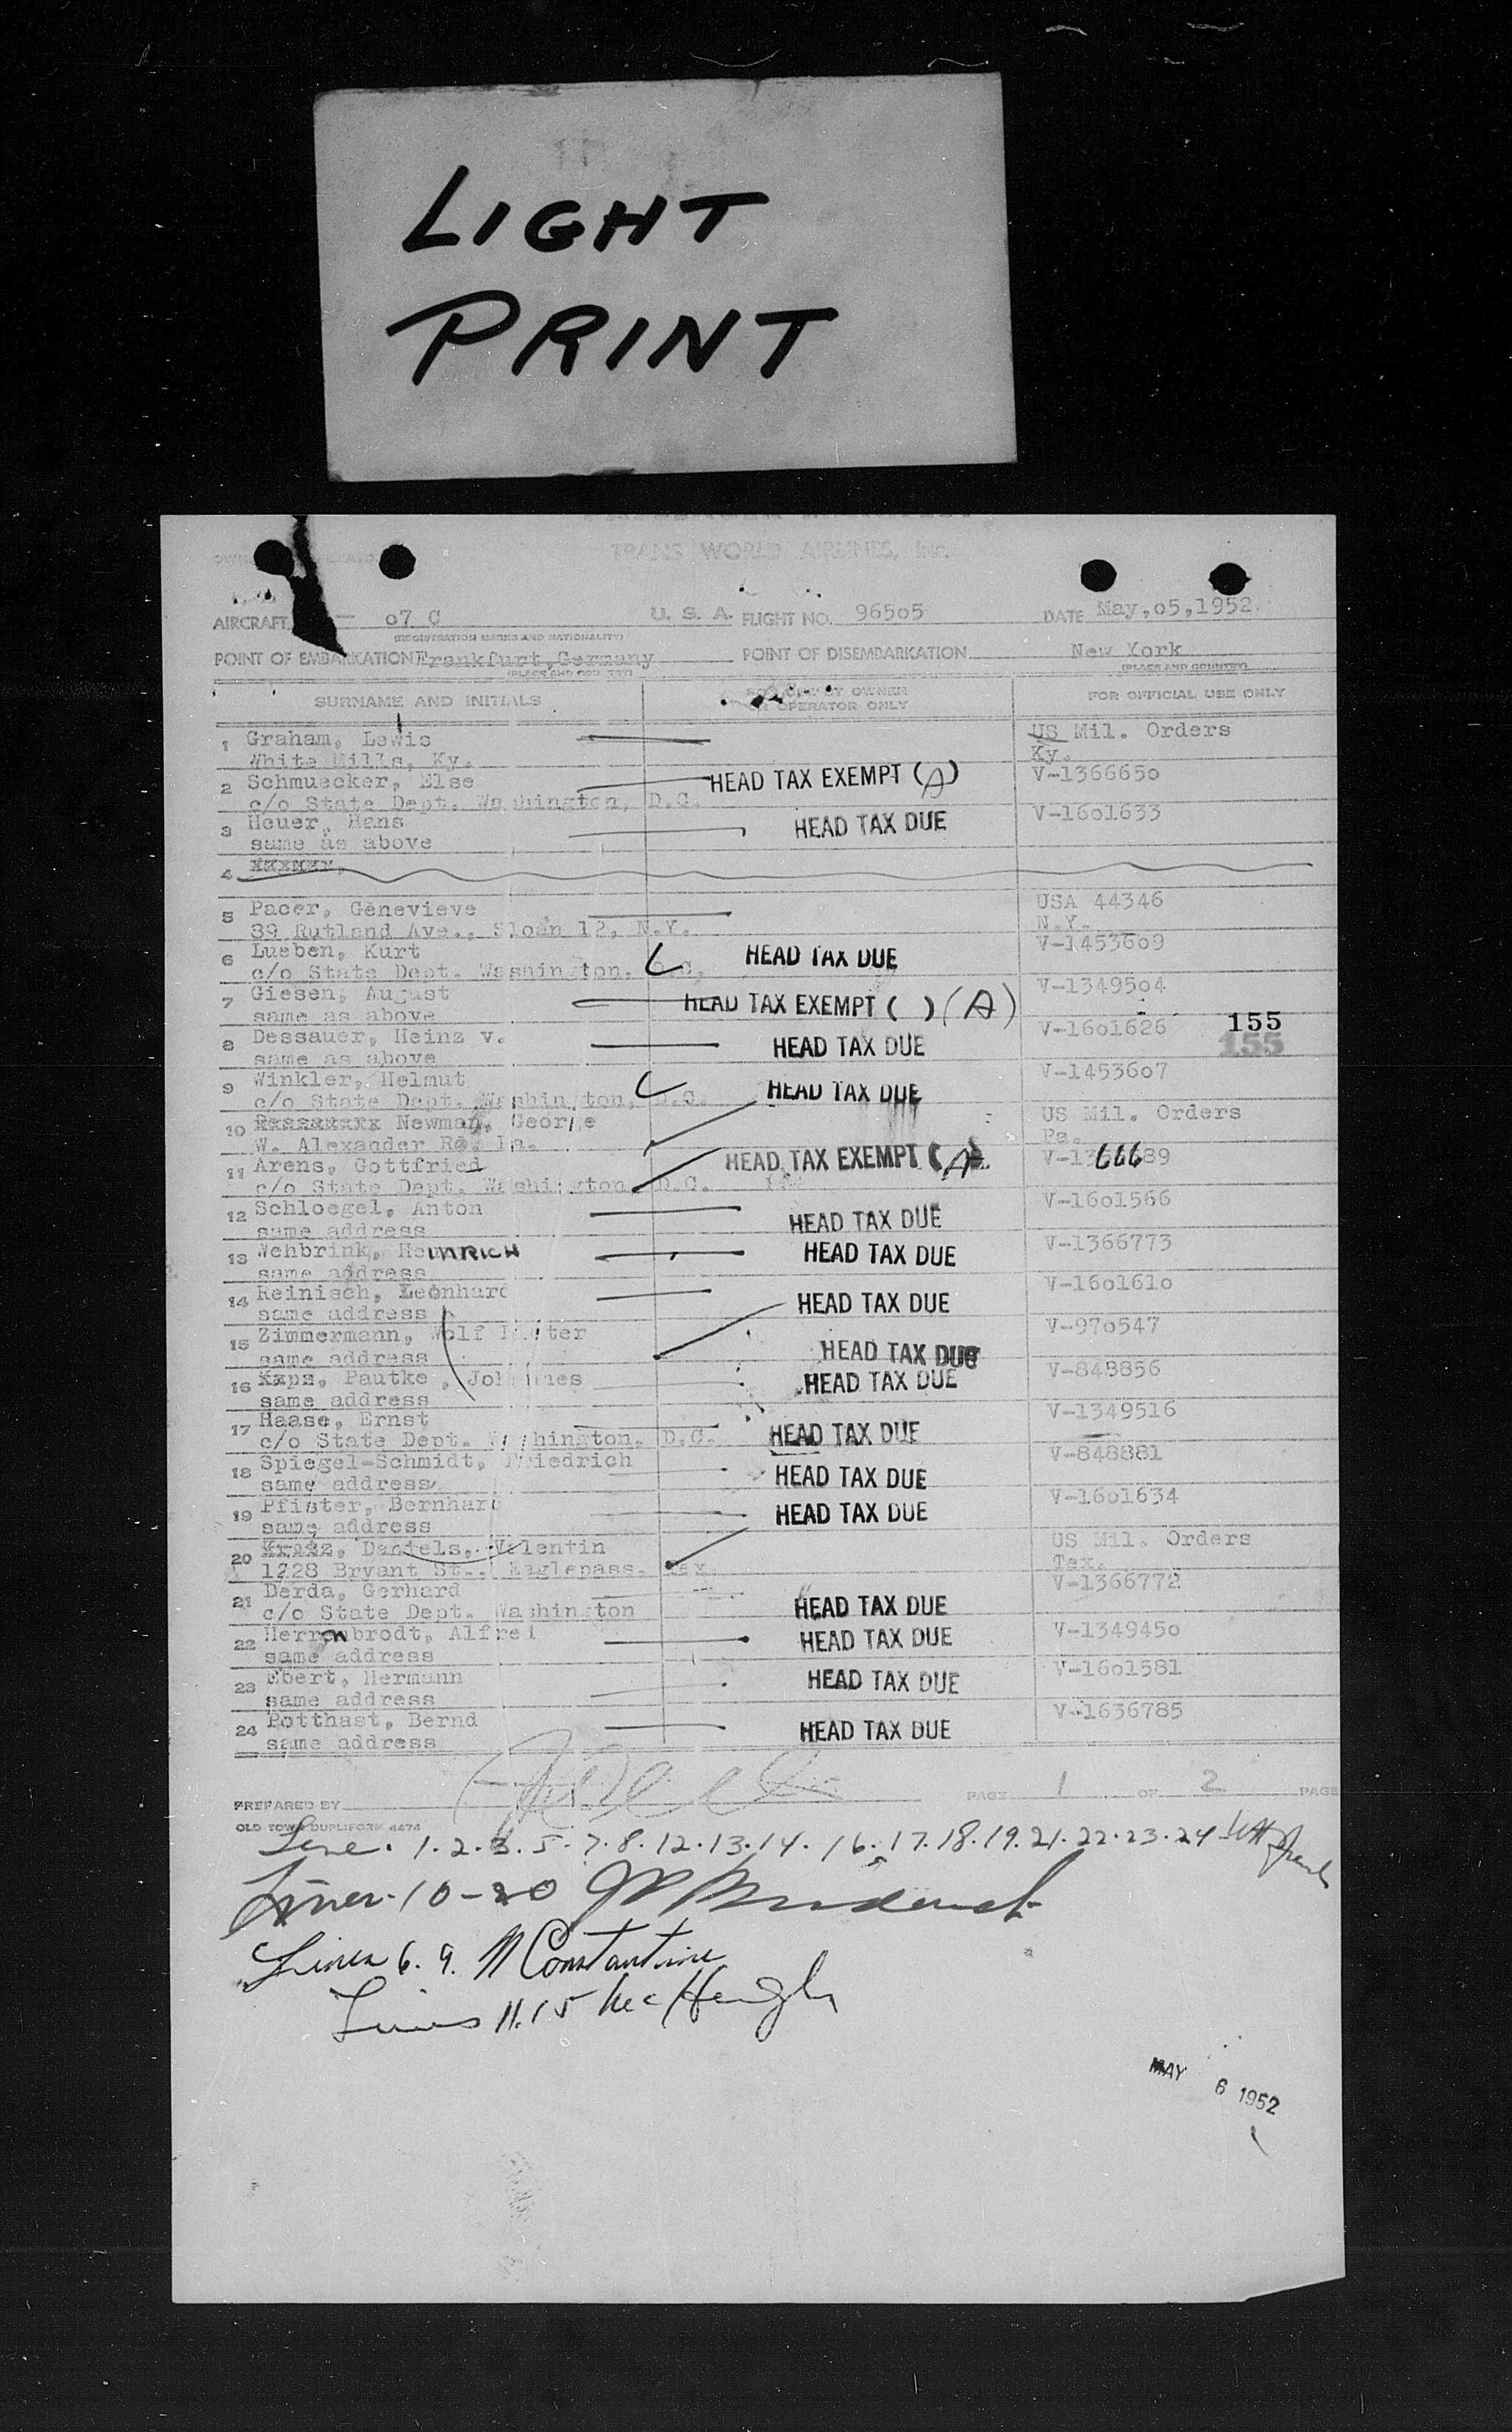 LIGHT
PRINT
TRANS WORLD AIRLINES, Inc.
AIRCRAFT o7 C U. S. A. FLIGHT NO. 96505 DATE May,o5,1952.
(REGISTRATION MARKS AND NATIONALITY)
POINT OF EMBARKATION Frankfurt,Germany POINT OF DISEMBARKATION New York
(PLACE AND COUNTRY) (PLACE AND COUNTRY)
SURNAME AND INITIALS FOR USE BY OWNER OR OPERATOR ONLY FOR OFFICIAL USE ONLY
1 Graham, Lewis US Mil. Orders
White Mills, Ky. Ky.
2 Schmuecker, Else HEAD TAX EXEMPT (A) V-136665o
c/o State Dept. Washington, D.C.
3 Heuer, Hans HEAD TAX DUE V-16o1633
same as above
4
5 Pacer, Genevieve USA 44346
39 Rutland Ave., Sloan 12, N.Y. N.Y.
6 Lueben, Kurt HEAD TAX DUE V-14536o9
c/o State Dept. Washington, D.C.
7 Giesen, August HEAD TAX EXEMPT ( ) (A) V-13495o4
same as above
8 Dessauer, Heinz v. HEAD TAX DUE V-16o1626 155
same as above 155
9 Winkler, Helmut HEAD TAX DUE V-14536o7
c/o State Dept. Washington, D.C.
10 Newman, George US Mil. Orders
W. Alexander Rd. Pa. Pa.
11 Arens, Gottfried HEAD TAX EXEMPT (A) V-1366689
c/o State Dept. Washington, D.C.
12 Schloegel, Anton HEAD TAX DUE V-16o1566
same address
13 Wehbrink, HeINRICH HEAD TAX DUE V-1366773
same address
14 Reinisch, Leonhard HEAD TAX DUE V-16o161o
same address
15 Zimmermann, Wolf Dieter HEAD TAX DUE V-97o547
same address
16 Pautke, Johannes HEAD TAX DUE V-848856
same address
17 Haase, Ernst HEAD TAX DUE V-1349516
c/o State Dept. Washington, D.C.
18 Spiegel-Schmidt, Friedrich HEAD TAX DUE V-848881
same address
19 Pfister, Bernhard HEAD TAX DUE V-16o1634
same address
20 Daniels, Valentin US Mil. Orders
1228 Bryant St., Eaglepass, Tex. Tex.
21 Derda, Gerhard HEAD TAX DUE V-1366772
c/o State Dept. Washington
22 Herrenbrodt, Alfred HEAD TAX DUE V-134945o
same address
23 Ebert, Hermann HEAD TAX DUE V-16o1581
same address
24 Potthast, Bernd HEAD TAX DUE V-1636785
same address
PREPARED BY PAGE 1 OF 2 PAGE
OLD TOWN DUPLIFORM 4474
Line. 1.2.3.5.7.8.12.13.14. 16.17.18.19.21.22.23.24
Lines 10-20
Lines 6. 9. M Constantine
Lines 11.15
MAY 6 1952